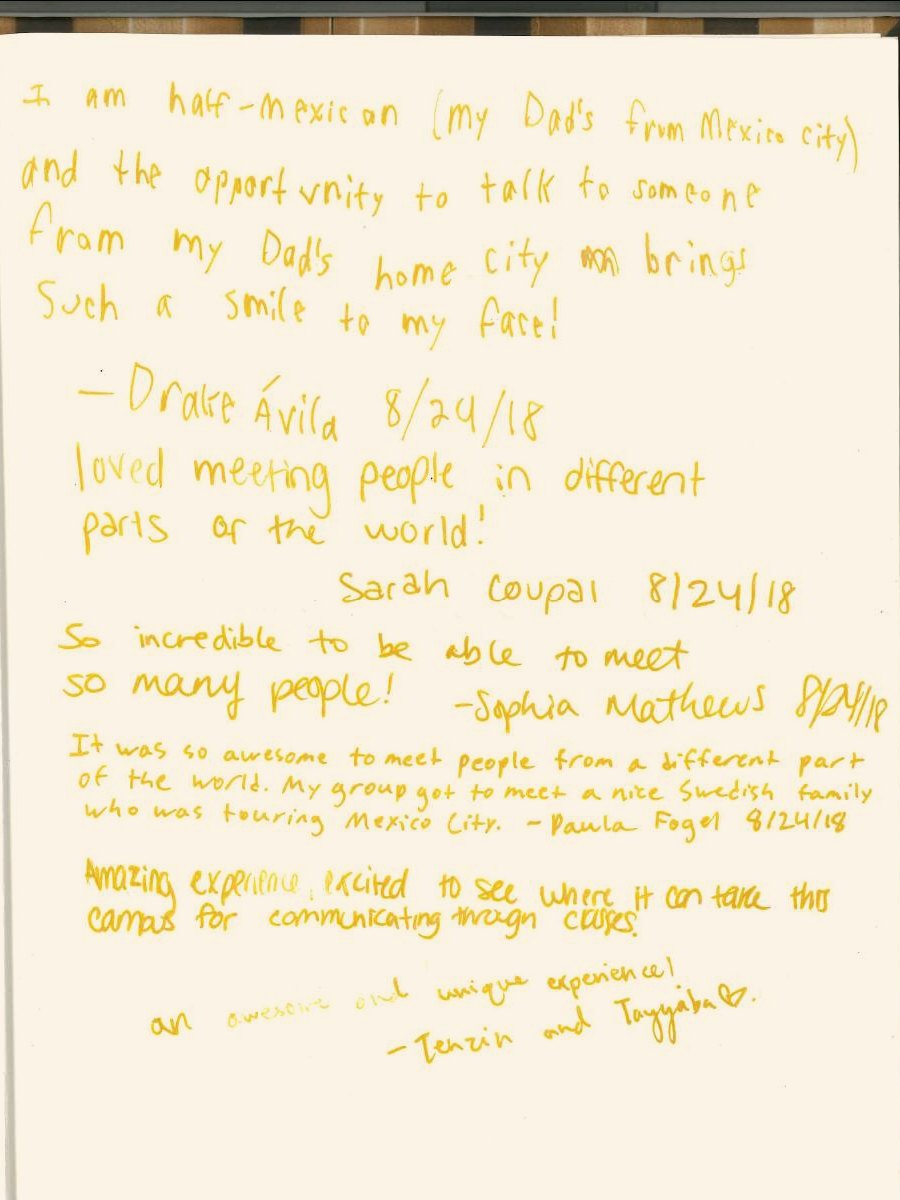 I am half-Mexican (my Dad's from Mexico city)
and the opportunity to talk to someone
from my Dad's home city brings
Such a smile to my face!
- Drake Ávila 8/24/18
loved meeting people in different
parts of the world!
Sarah Coupal 8/24/18
So incredible to be able to meet
so many people! -Sophia Mathews 8/24/18
It was so awesome to meet people from a different part
of the world. My group got to meet a nice Swedish family
who was touring Mexico City. - Paula Fogel 8/24/18
Amazing experience, excited to see where it can take this
campus for communicating through classes.
an awesome and unique experience!
- Tenzin and Tayyaba ♡.